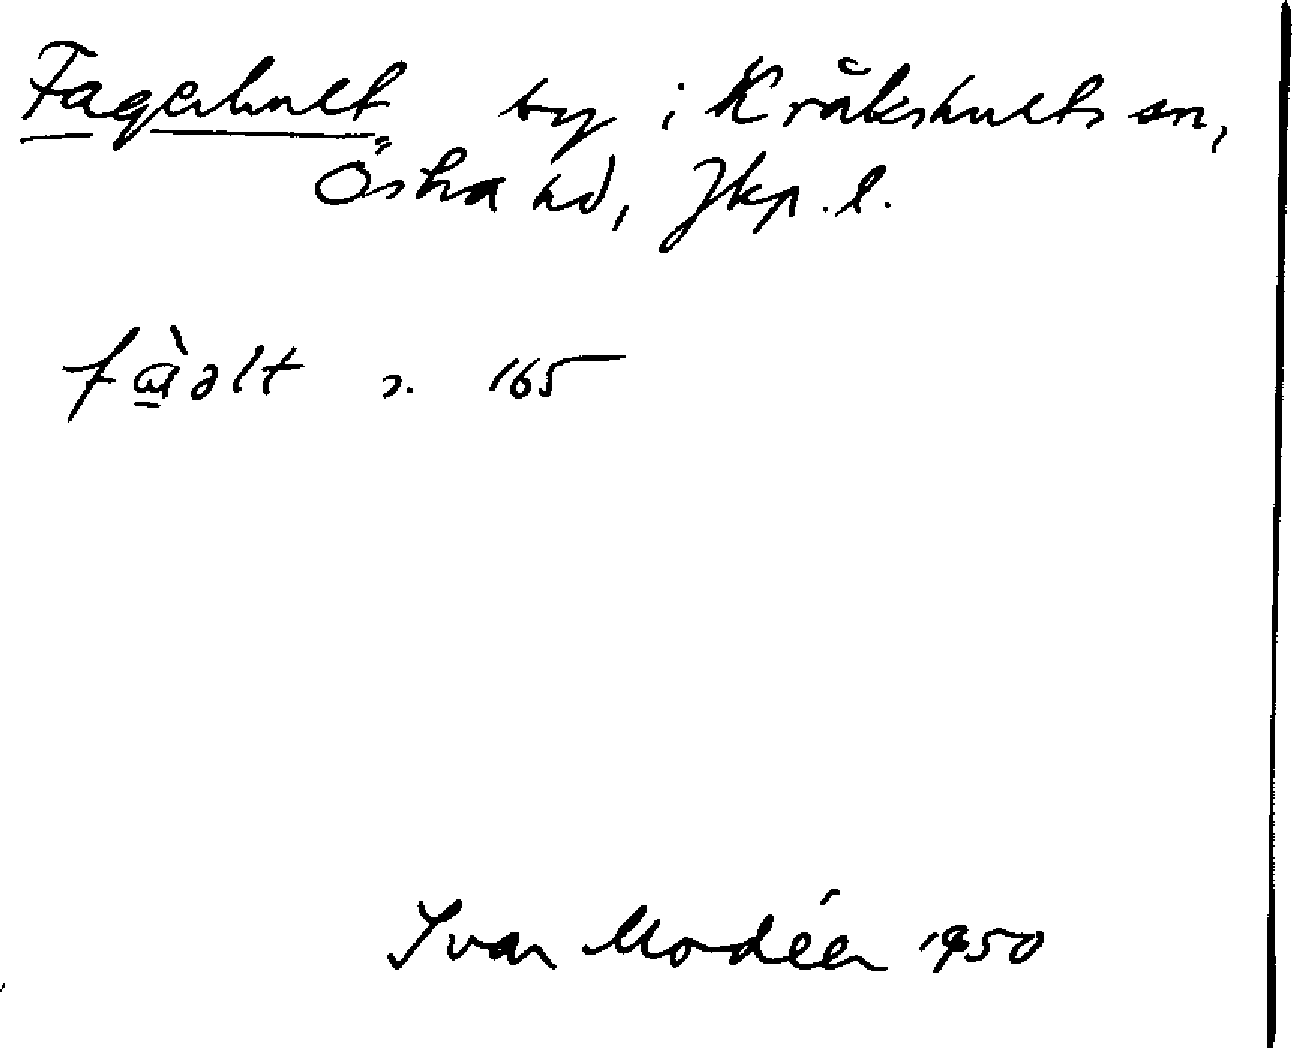 Fagerhult by i Kråkshults sn,
Östra hd, Jkp. l.
fàəlt s. 165
Ivar Modéer 1950